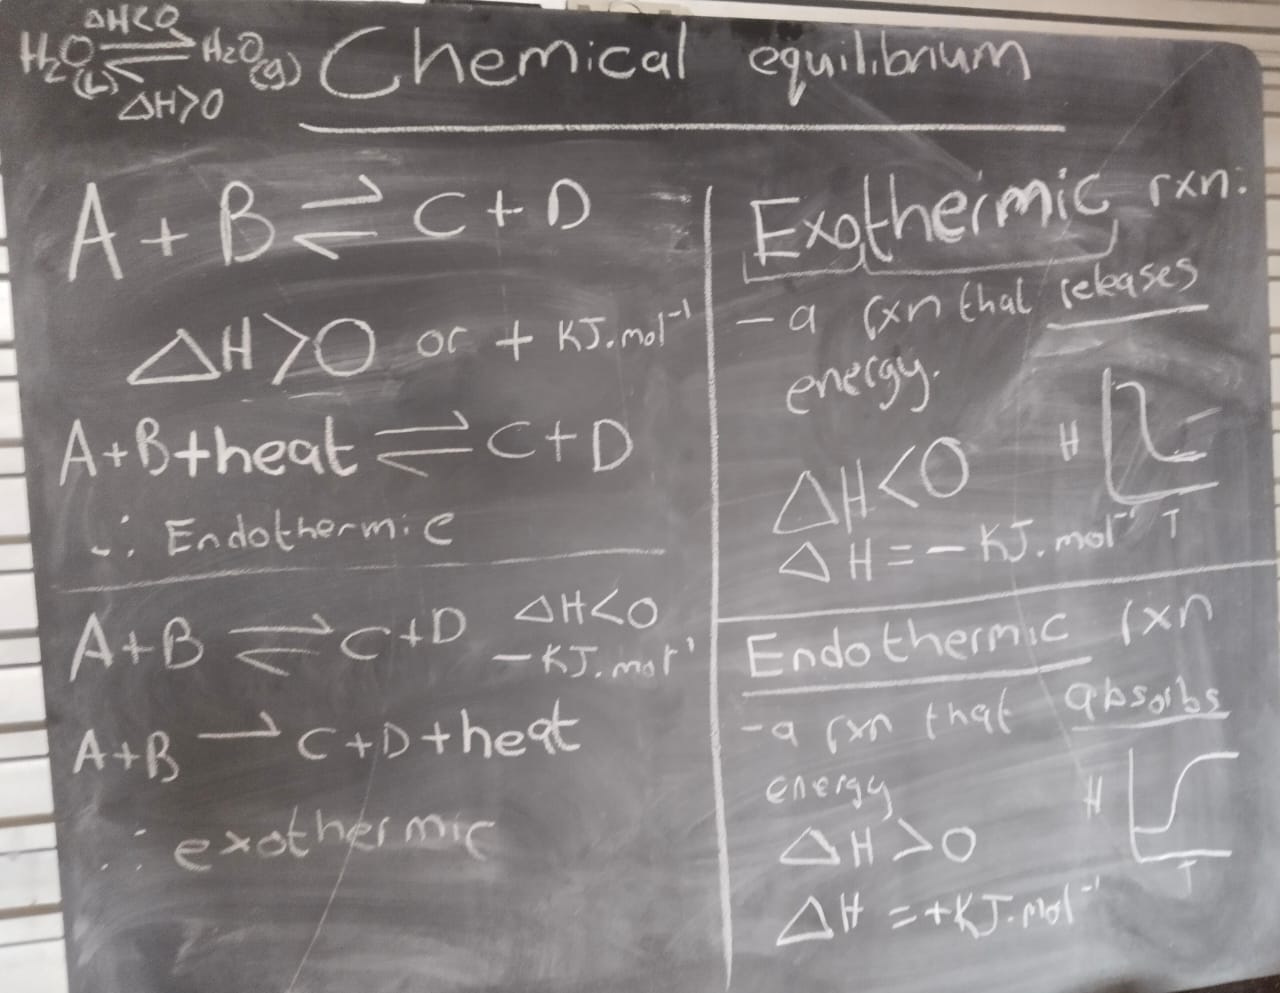 ΔH<0
H₂O(L) ⇌ H₂O(g)
ΔH>0
Chemical equilibrium
A + B ⇌ C + D
ΔH>0 or + KJ.mol⁻¹
A+B+heat ⇌ C+D
∴ Endothermic
A+B ⇌ C+D ΔH<0
-KJ.mol⁻¹
A+B → C+D+heat
∴ exothermic
Exothermic rxn:
- a rxn that releases
energy.
H
ΔH<0
T
ΔH = - KJ.mol⁻¹
Endothermic rxn
- a rxn that absorbs
energy
H
ΔH>0
T
ΔH = +KJ.mol⁻¹